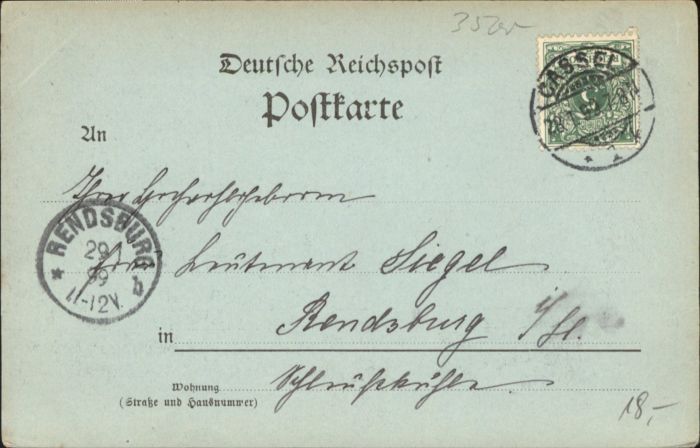 Deutsche Reichspost
Postkarte
CASSEL
An
Ihrer Hochwohlgeboren
RENDSBURG
29
99
11-12V.
Herrn Leutenant Siegel
in Rendsburg i/H.
Wohnung
(Straße und Hausnummer)
18,-